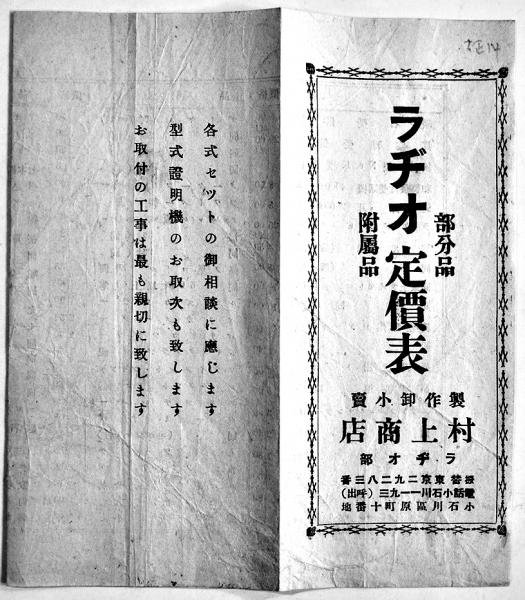 大正14
ラヂオ
部分品
附屬品
定價表
製作卸小賣
村上商店
ラヂオ部
振替東京二九二八三番
電話小石川一一九三(呼出)
小石川區原町十番地
各式セツトの御相談に應じます
型式證明機のお取次も致します
お取付の工事は最も親切に致します